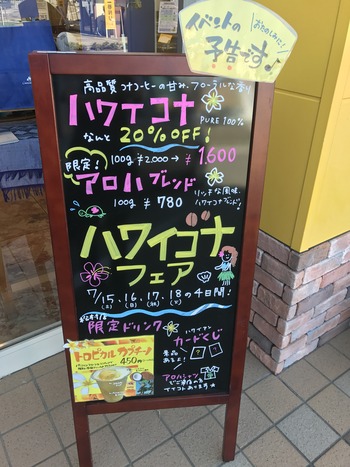 イベントの
おたのしみに!
予告です♪
高品質コナコーヒーの甘み、フローラルな香り
ハワイコナ
PURE 100%
なんと 20%OFF!
限定! 100g ¥2,000 → ¥1,600
アロハブレンド
100g ¥780
リッチな風味、
ハワイコナブレンド!
ハワイコナ
フェア
7/15.16.17.18の4日間!
(土)(日)(月)(火)
限定ドリンク
トロピカルカプチーノ
450円
ハワイアン
カードくじ
景品
あるよ!
アロハシャツ